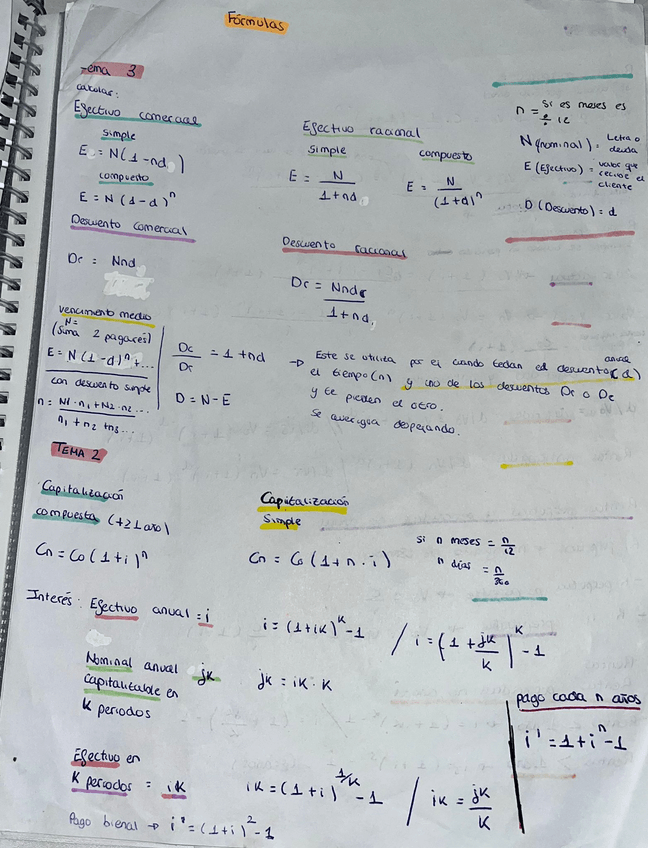 Fórmulas
Tema 3
calcular:
Efectivo comercial
simple
E = N(1-nd)
compuesto
E = N(1-d)^n
Descuento comercial
Dc = Nnd
Efectivo racional
simple
E = N / 1+nd
compuesto
E = N / (1+d)^n
Descuento racional
Dr = Nnd / 1+nd
n = si es meses es
12
N (nominal) = Letra o
deuda
E (Efectivo) = valor que
recibe el
cliente
D (Descuento) = d
vencimiento medio
N=
(suma 2 pagares)
E = N(1-d)^n + ...
con descuento simple
n = N1·n1 + N2·n2... / n1 + n2 + n3...
Dc / Dr = 1+nd
D = N-E
→ Este se utiliza por ej cuando te dan el descuento anual (d)
el tiempo (n) y uno de los descuentos Dr o Dc
y te piden el otro.
Se averigua despejando.
TEMA 2
Capitalización
compuesta (+≥1 año)
Cn = Co (1+i)^n
Capitalización
Simple
Cn = Co (1+n·i)
si n meses = n/12
n días = n/360
Interés: Efectivo anual = i
i = (1+ik)^k - 1 / i = (1 + jk/k)^k - 1
Nominal anual jk
capitalizable en
k periodos
jk = ik · k
pago cada n años
i' = 1+i^n - 1
Efectivo en
k periodos = ik
ik = (1+i)^1/k - 1 / ik = jk/k
Pago bienal → i' = (1+i)^2 - 1